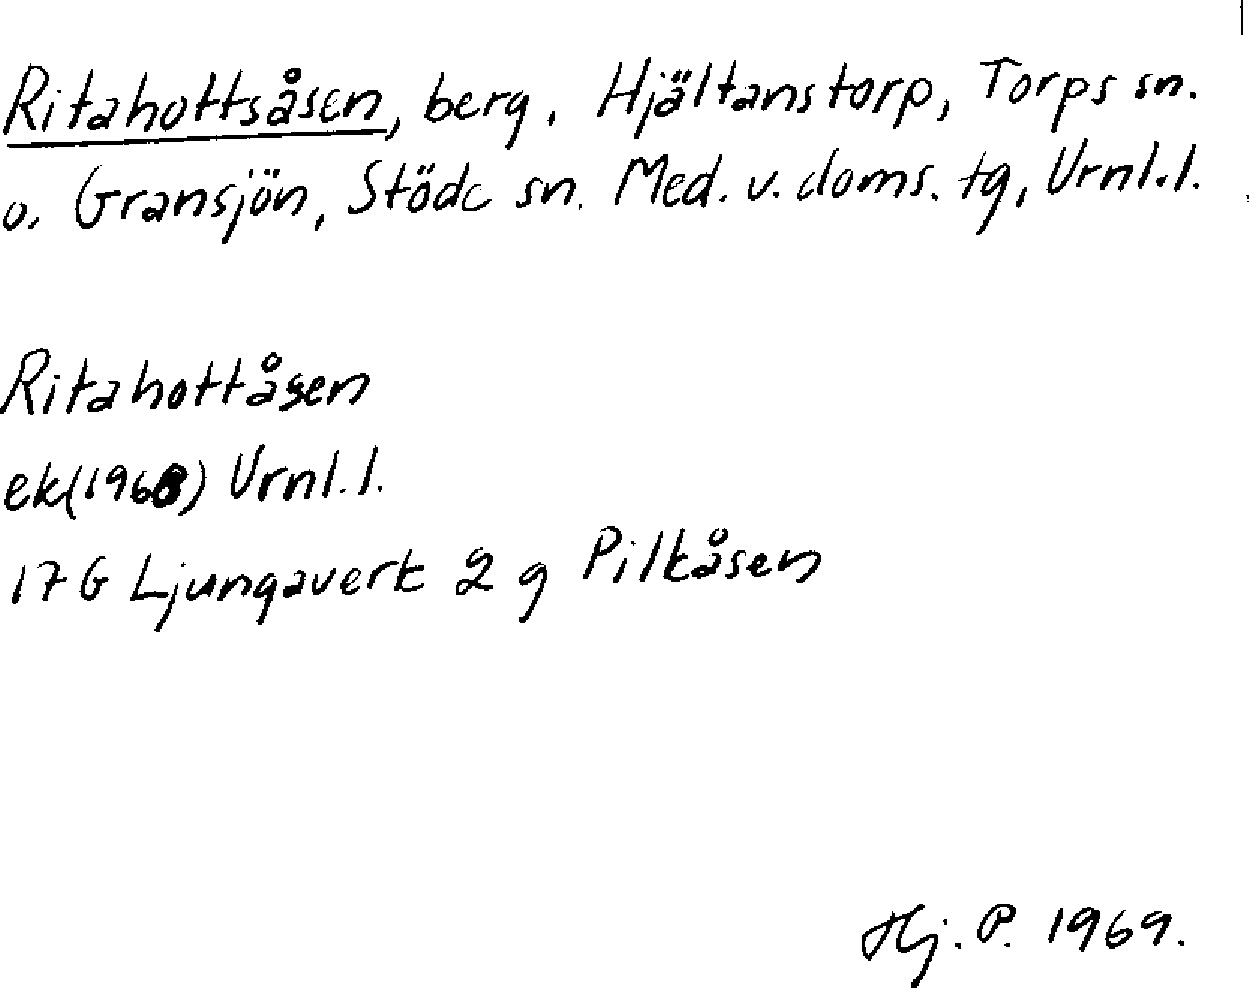 Ritahottsåsen, berg. Hjältanstorp, Torps sn.
o. Gransjön, Stöde sn. Med. v. doms. tg, Vrnl.l.
Ritahottåsen
ek(1968) Vrnl.l.
17 G Ljungaverk 2 g Pilkåsen
Hj. P. 1969.